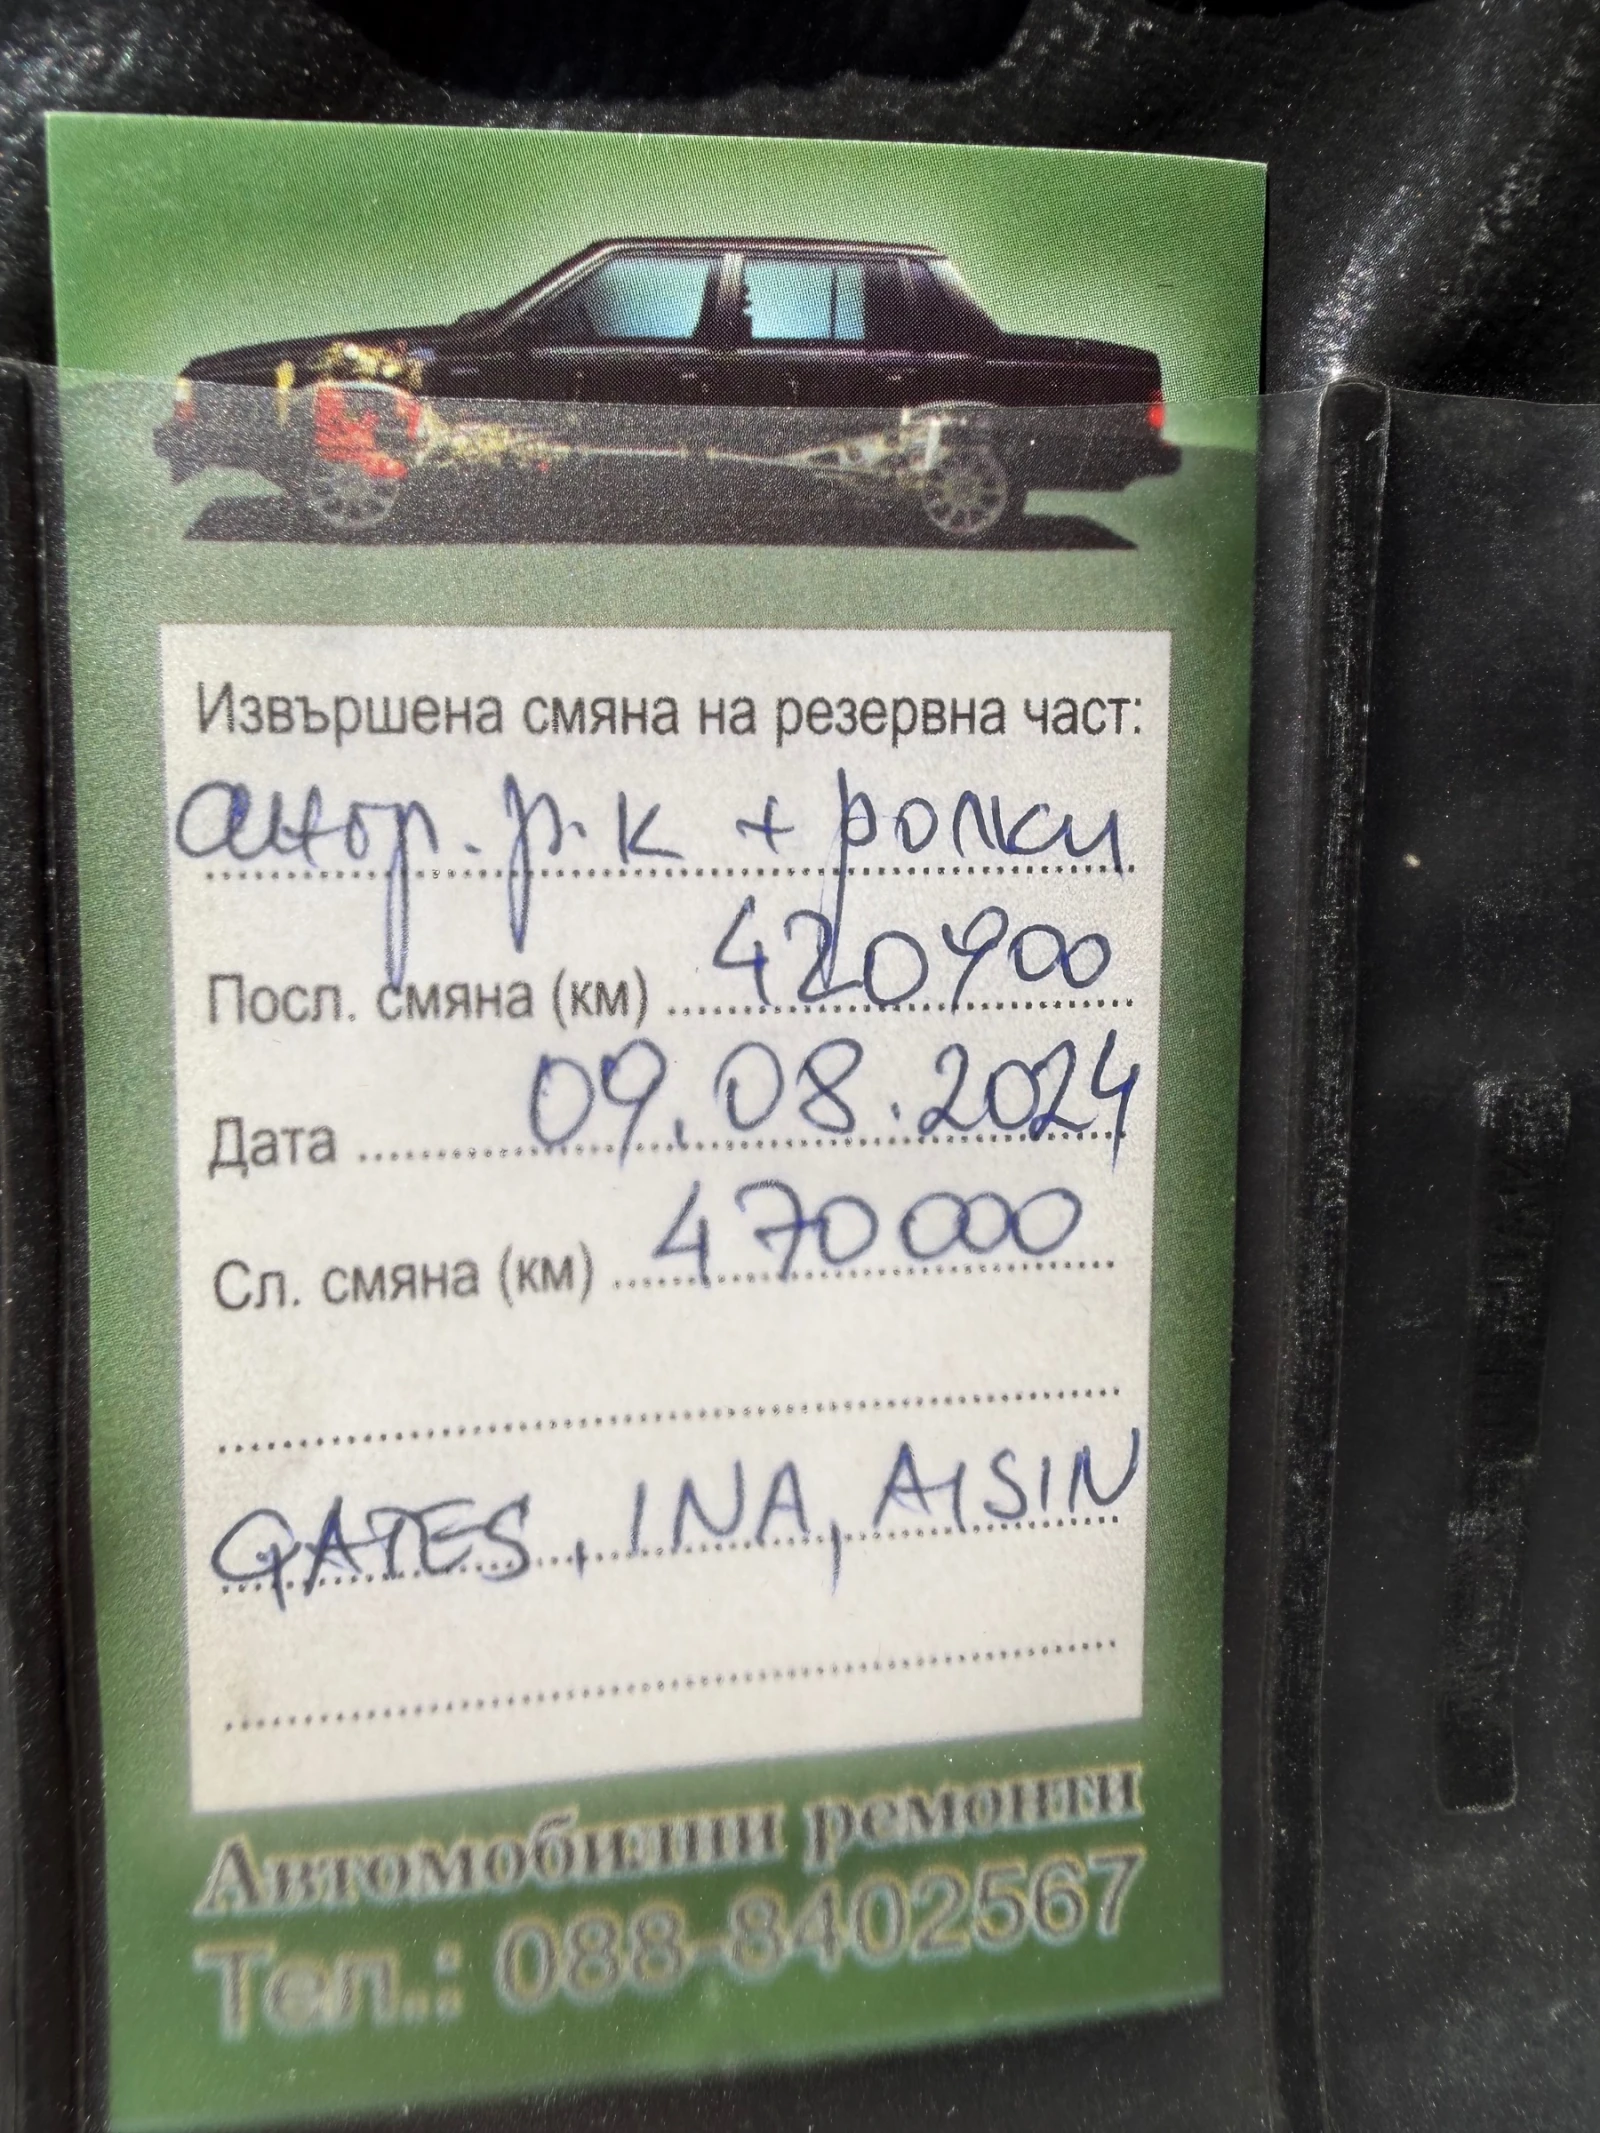 Извършена смяна на резервна част:
р.к + ролки
Посл. смяна (км)
Дата 09.08.2024
Сл. смяна (км) 470000
GATES, INA, AISIN
Автомобилни ремонти
Тел.: 088-8402567